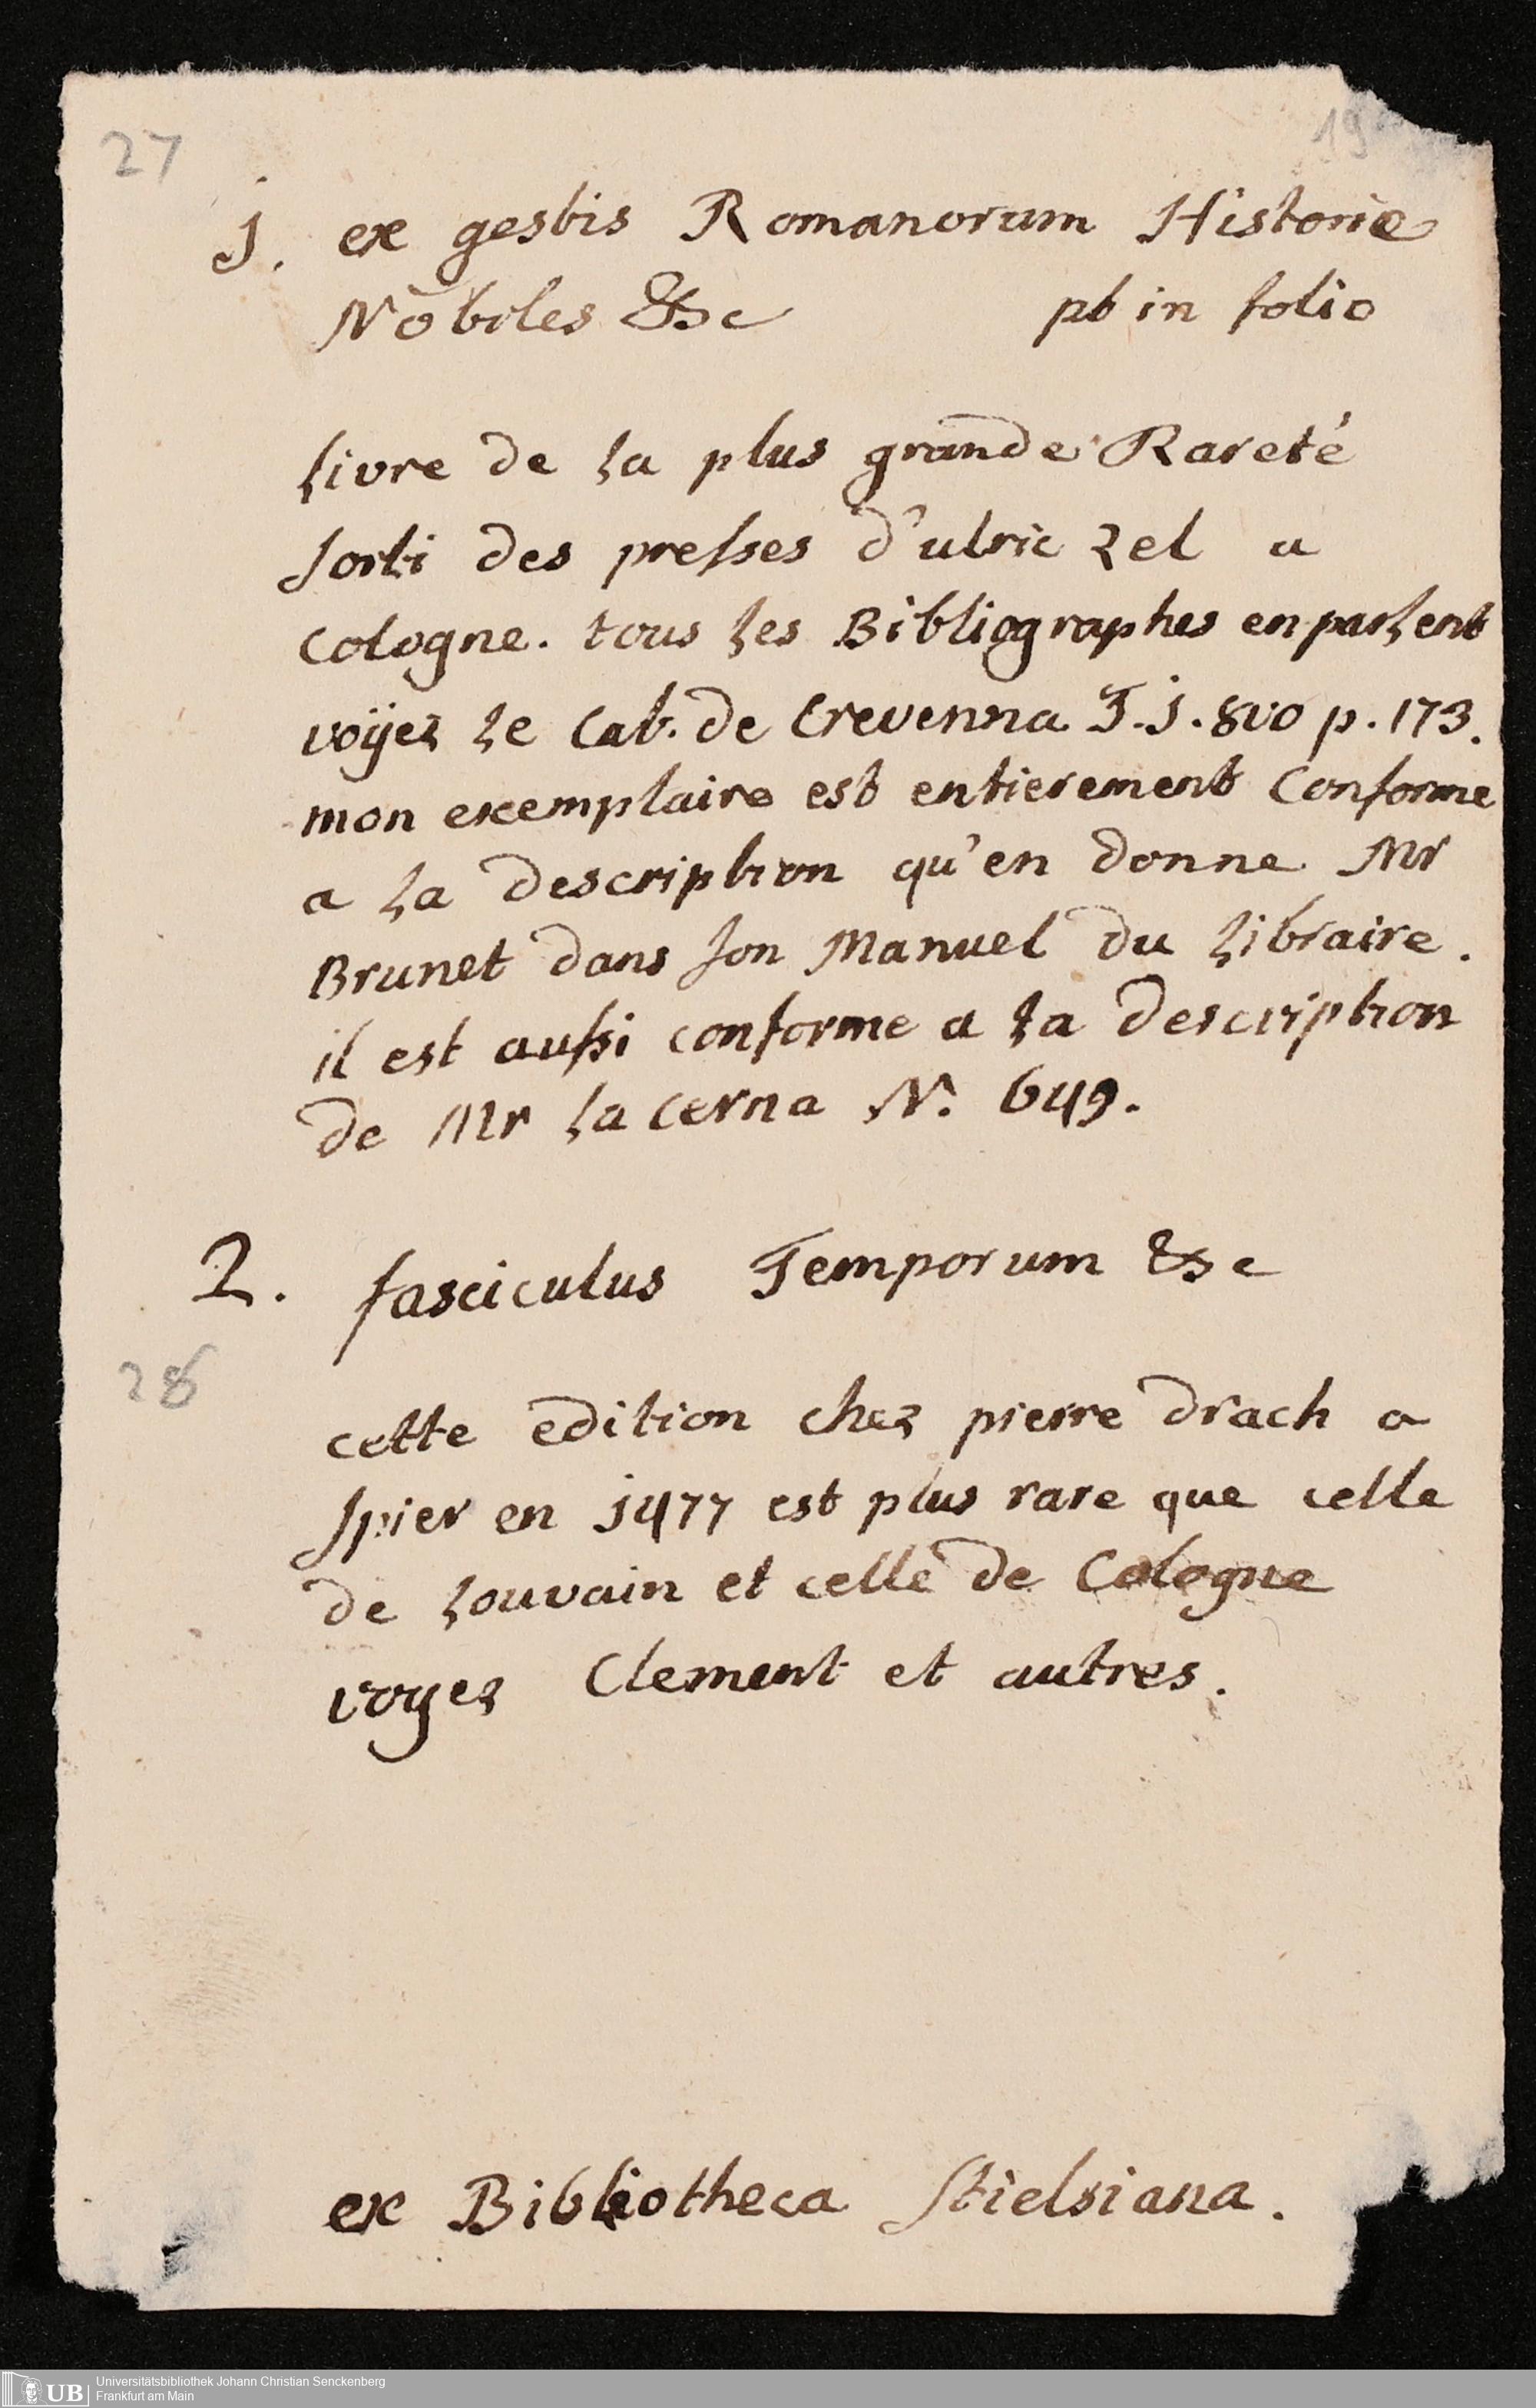 27
19
1. ex gestis Romanorum Historie
Nobiles &c pt in folio
livre de la plus grande Rareté
sorti des presses d'ulric zel a
Cologne. tous les Bibliographes en parlent
voÿez le Cab. de Crevenna T. 1. 8vo p. 173.
mon exemplaire est entierement Conforme
a la description qu'en donne Mr
Brunet dans son Manuel du libraire.
il est aussi conforme a la description
de Mr la cerna N. 649.
2. fasciculus Temporum &c
28
cette edition chez pierre drach a
spier en 1477 est plus rare que celle
de louvain et celle de Cologne
voyez Clement et autres.
ex Bibliotheca Stielsiana.
UB Universitätsbibliothek Johann Christian Senckenberg
Frankfurt am Main